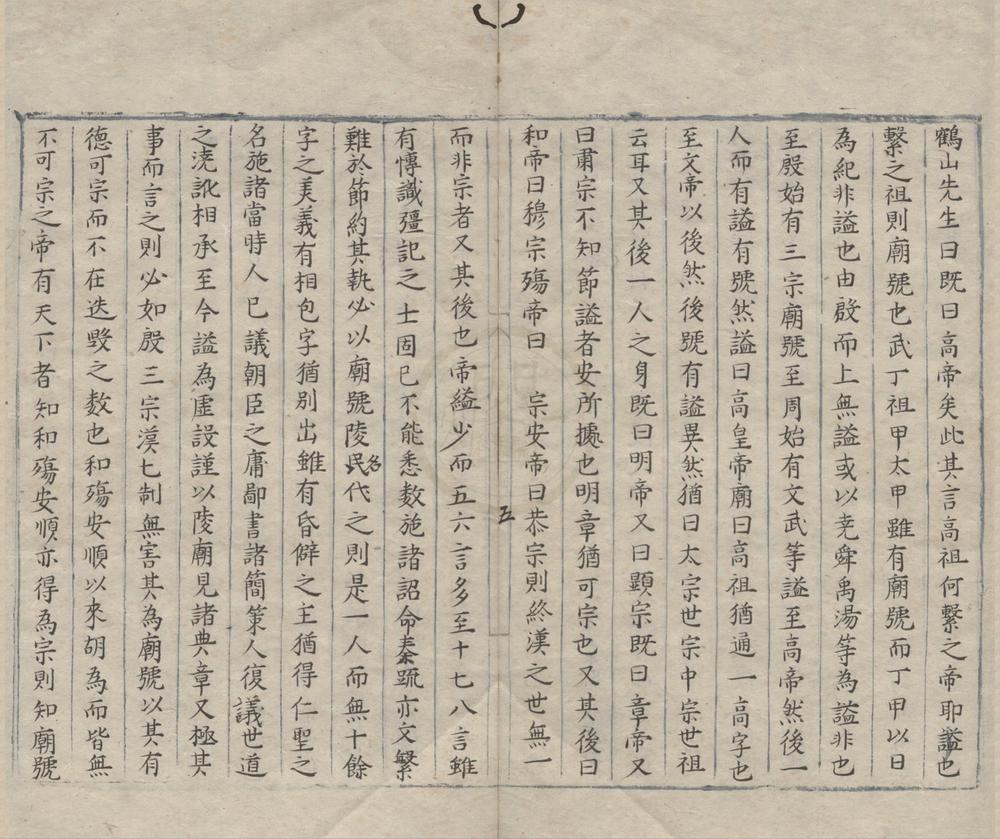 鶴山先生曰既曰高帝矣此其言高祖何繫之帝耶謚也
繫之祖則廟號也武丁祖甲太甲雖有廟號而丁甲以日
為紀非謚也由殷而上無謚或以尭舜禹湯等為謚非也
至殷始有三宗廟號至周始有文武等謚至高帝然後一
人而有謚有號然謚曰高皇帝廟曰高祖猶通一高字也
至文帝以後然後號有謚異然猶曰太宗世宗中宗世祖
云耳又其後一人之身既曰明帝又曰顯宗既曰章帝又
曰肅宗不知節謚者安所據也明章猶可宗也又其後曰
和帝曰穆宗殤帝曰 宗安帝曰恭宗則終漢之世無一
五
而非宗者又其後也帝謚少而五六言多至十七八言雖
有愽識彊記之士固已不能悉数施諸詔命奏䟽亦文繁
難於節約其埶必以廟號陵名民代之則是一人而無十餘
字之美義有相包字猶別出雖有昏僻之主猶得仁聖之
名施諸當時人已議朝臣之庸鄙書諸簡策人復議世道
之澆訛相承至今謚為虛設謹以陵廟見諸典章又極其
事而言之則必如殷三宗漢七制無害其為廟號以其有
德可宗而不在迭毀之数也和殤安順以來胡為而皆無
不可宗之帝有天下者知和殤安順亦得為宗則知廟號